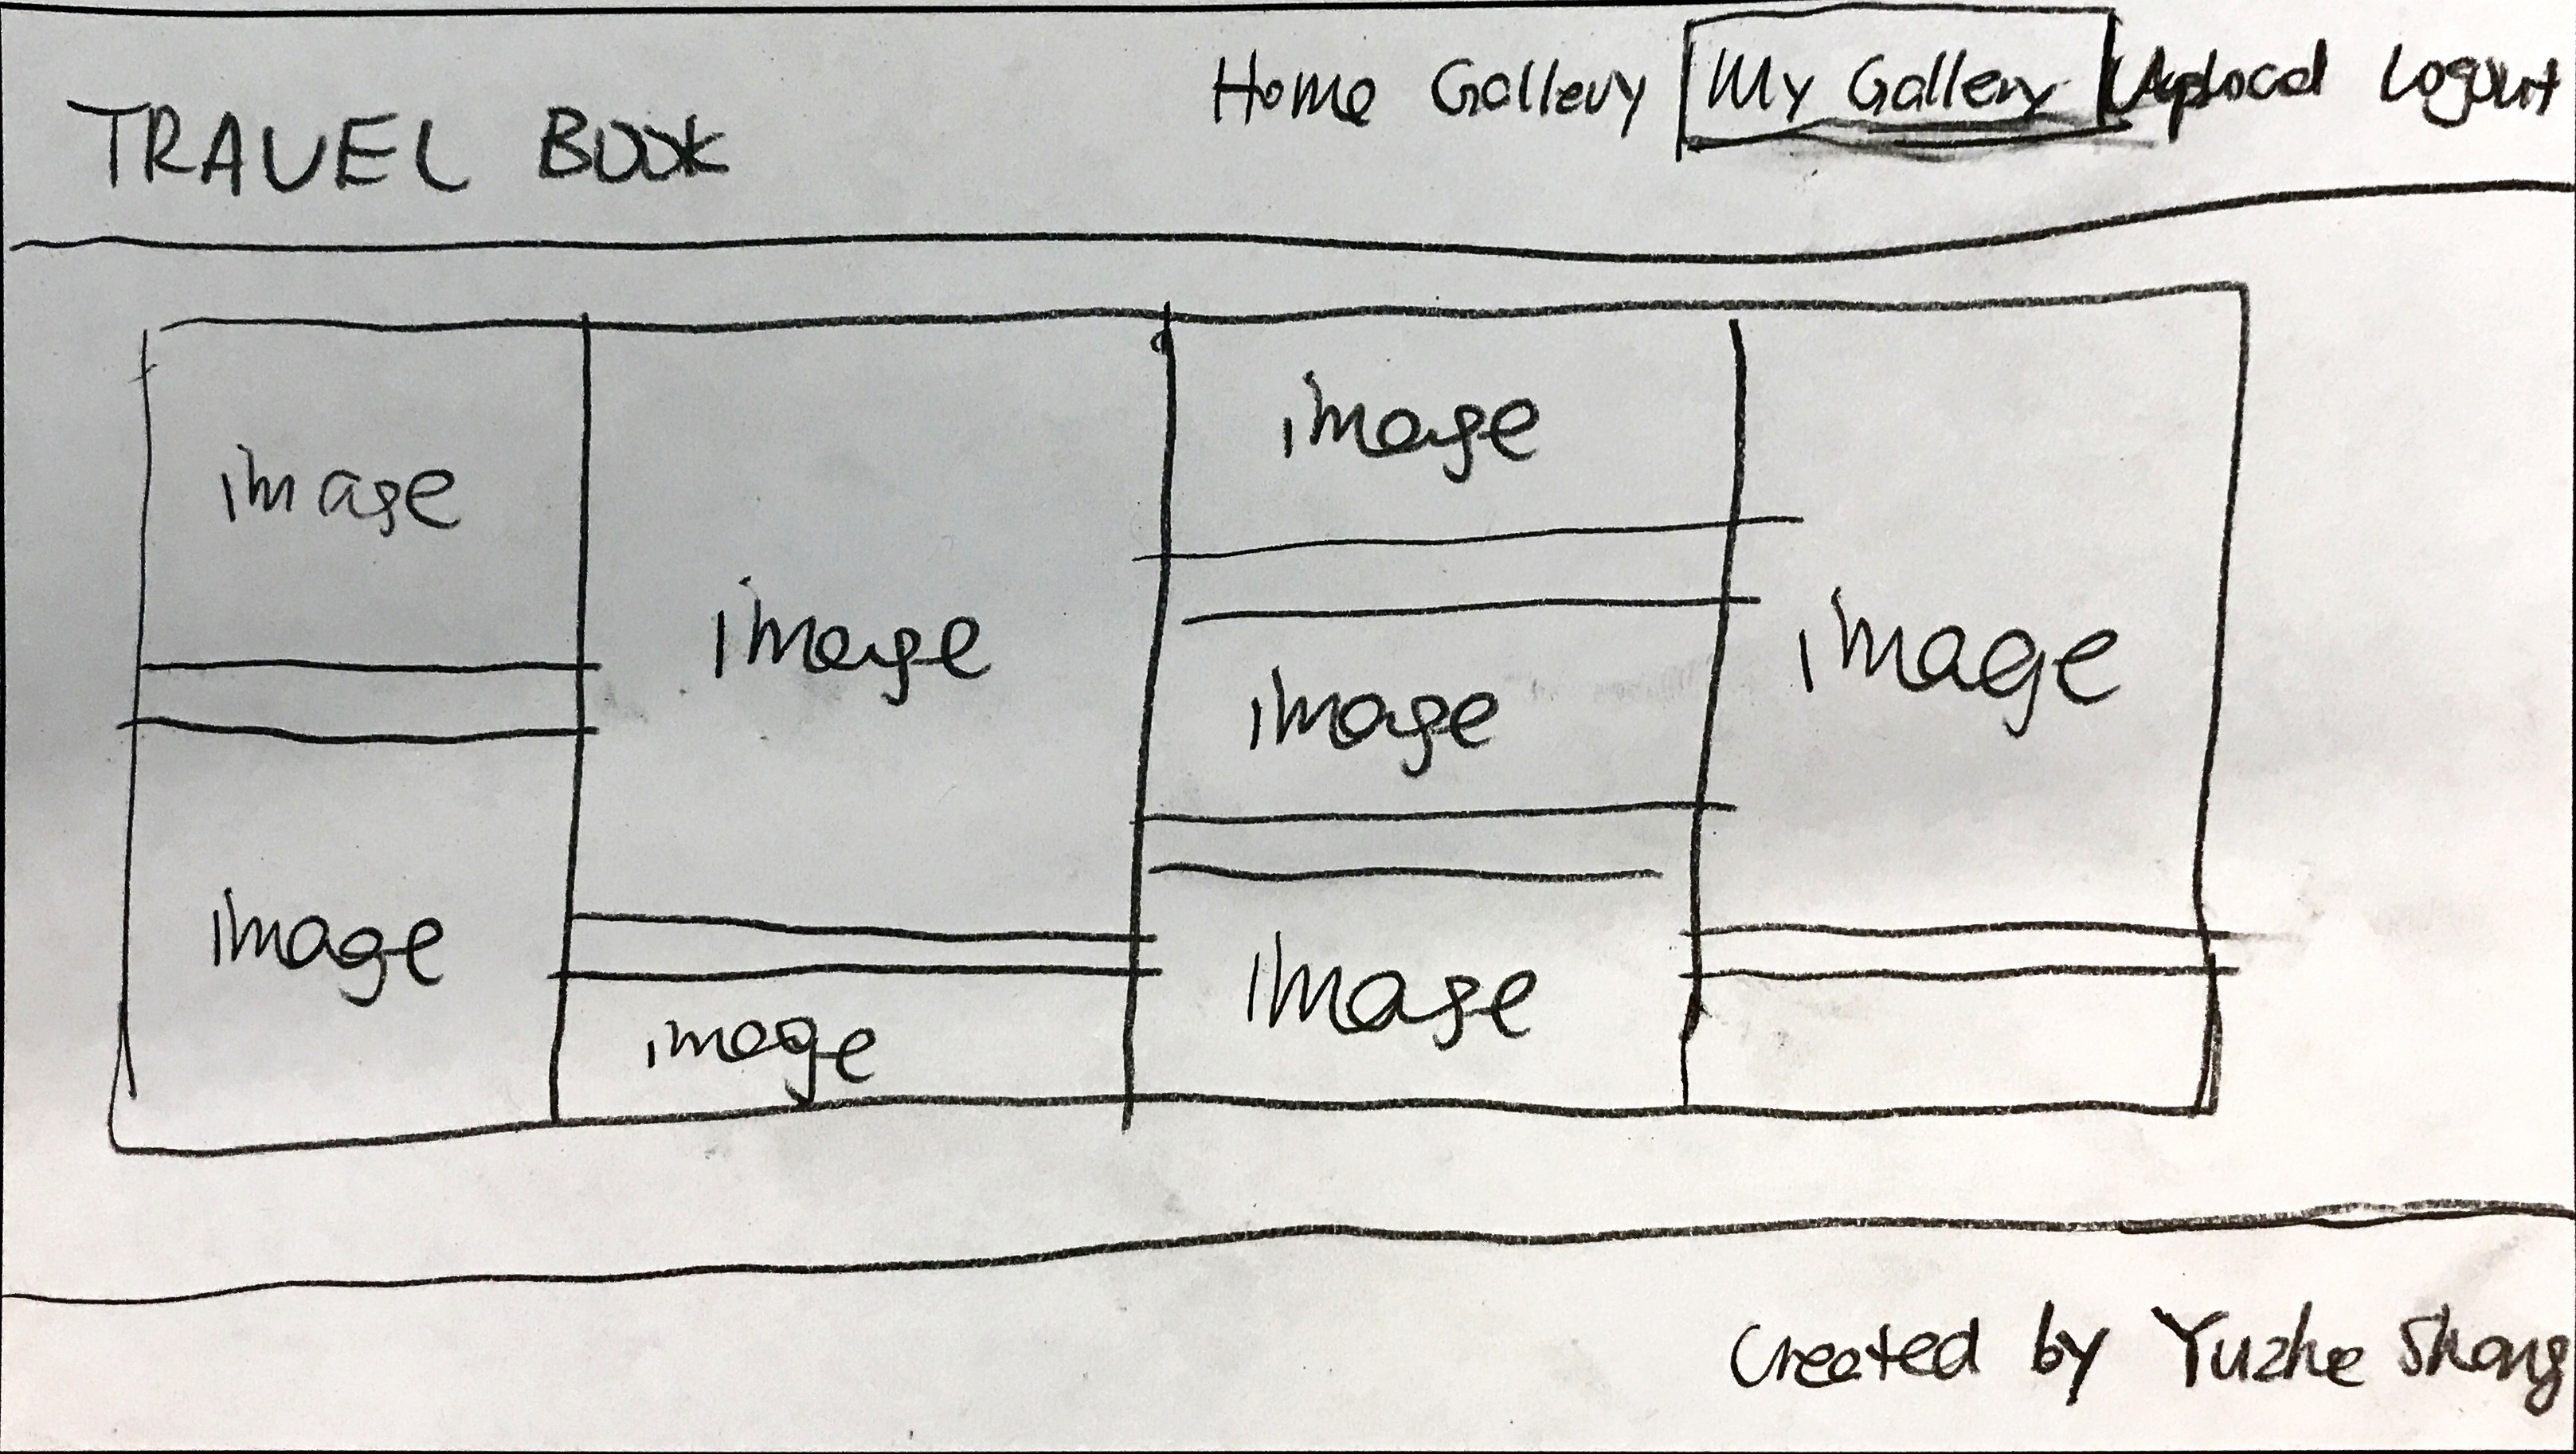 TRAVEL BOOK
Home Gallery My Gallery Upload Logout
image image image image
image image image
image image
Created by Yuzhe Shang